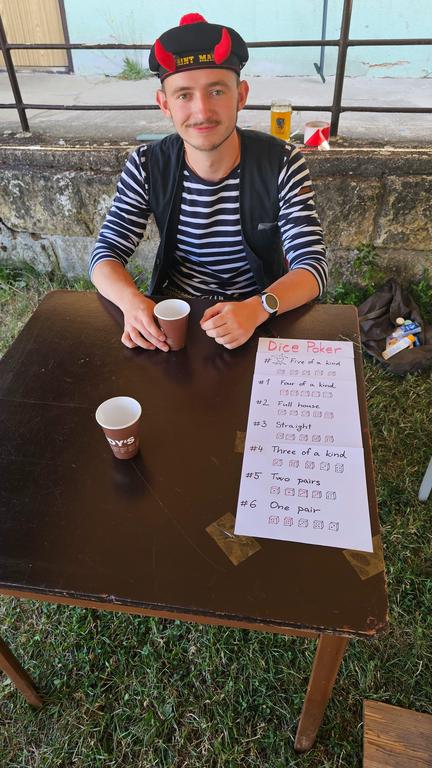 INT MA
Dice Poker
# Five of a kind
#1 Four of a kind
#2 Full house
#3 Straight
#4 Three of a kind
#5 Two pairs
#6 One pair
OY'S